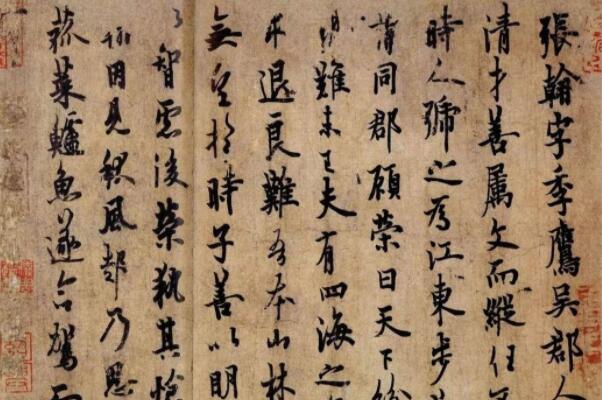 張翰字季鷹吳郡人
清才善屬文而縱任
時人號之為江東步
同郡顧榮曰天下紛
難未已夫有四海之
求退良難吾本山林
無望於時子善以明
智慮後榮執其愴
翰因見秋風起乃思
菰菜鱸魚遂命駕而